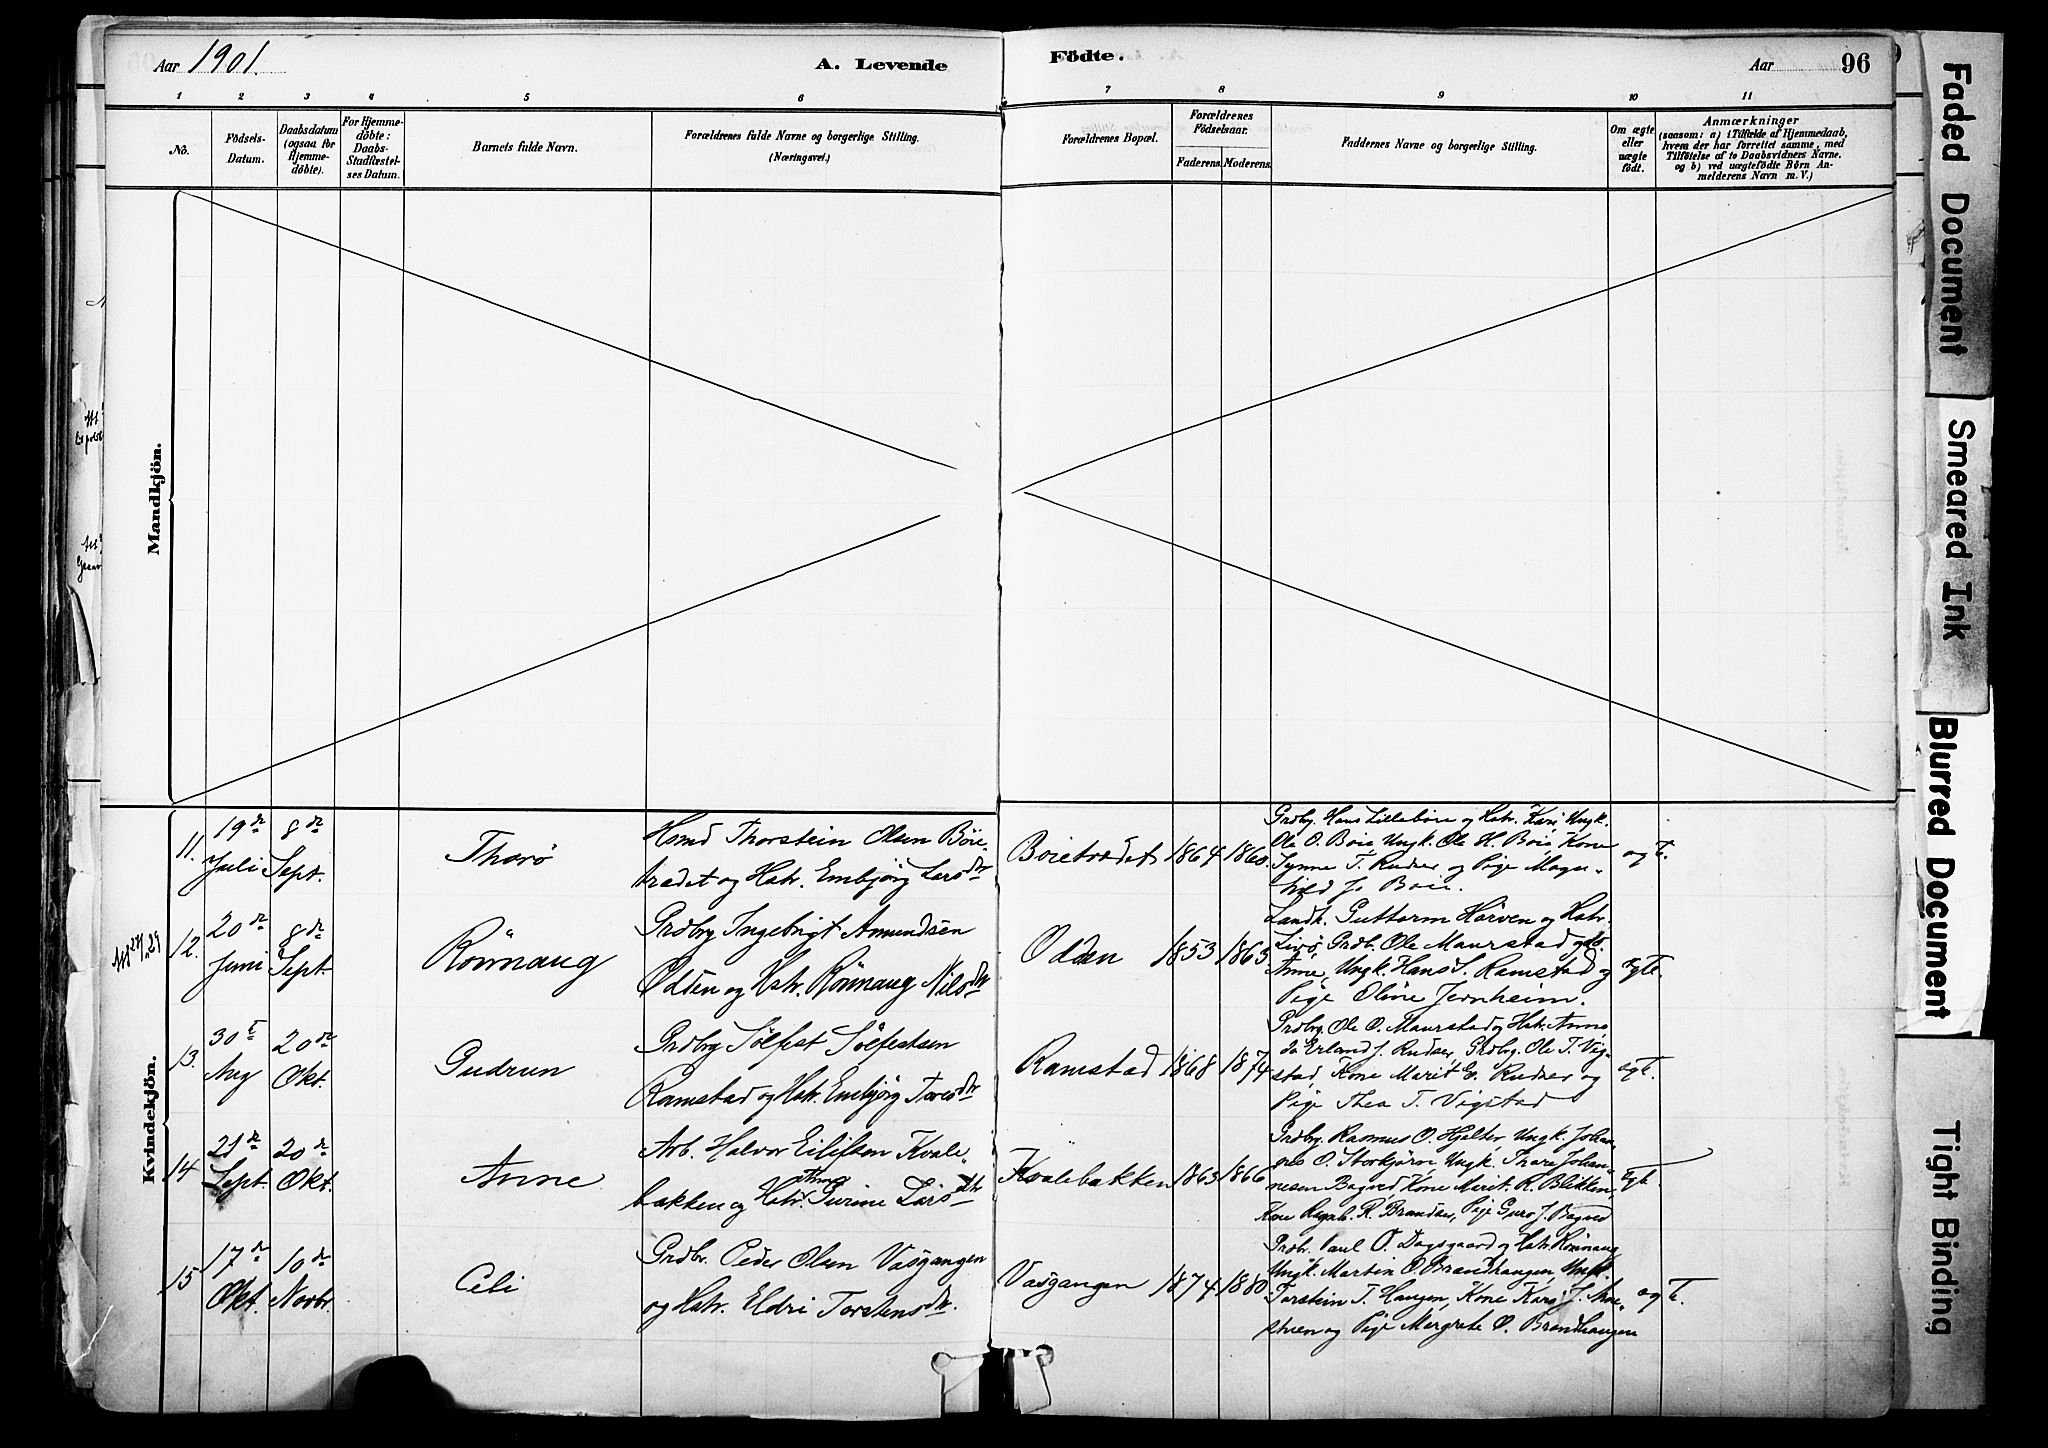 Aar 1901.
A. Levende
Födte.
Aar
96
1 2 3 4 5 6 7 8 9 10 11
No.
Födsels-
Datum.
Daabsdatum
(ogsaa for
Hjemme-
döbte).
For Hjemme-
döbte:
Daabs-
Stadfæstel-
ses Datum.
Barnets fulde Navn.
Forældrenes fulde Navne og borgerlige Stilling.
(Næringsvei.)
Forældrenes Bopæl.
Forældrenes
Födselsaar.
Faderens.
Moderens.
Faddernes Navne og borgerlige Stilling.
Om ægte
eller
uægte
födt.
Anmærkninger
(saasom: a) i Tilfælde af Hjemmedaab,
hvem der har forrettet samme, med
Tilföielse af to Daabsvidners Navne,
og b) ved uægtefödte Börn An-
melderens Navn m. V.)
Mandkjön.
Kvindekjön.
11.
19de
Juli
8de
Sept.
Thorø
Hsmd Thorstein Olsen Böie-
trædet og Hstr. Embjörg Larsdtr
Boietrædet
1864
1860
Grdbr. Hans Lillebøie og Hstr. Kari, Ungk.
Ole O. Böie, Ungk. Ole H. Böie, Kone
Synne T. Rudser og Pige Magn-
hild J. Boie.
ægte.
12.
20de
Juni
8de
Sept.
Rönnaug
Grdbrg Ingebrigt Amundsen
Odden og Hstr. Rönnaug Nilsdtr
Odden
1853
1865
Landh. Guttorm Horven og Hstr.
Livø, Grdb. Ole Maurstad og Hstr.
Anne, Ungk. Hans S. Ramstad og
Pige Oline Jernheim.
ægte.
13.
30te
Aug
20de
Okt.
Gudrun
Grdbrg Sölfest Sölfestsen
Ramstad og Hstr. Embjörg Toresdtr
Ramstad
1868
1874
Grdbrg. Ole O. Maurstad og Hstr. Anne
do Erland J. Rudser, Grdbrg. Ole T. Vig-
stad, Kone Marit E. Rudser og
Pige Thea T. Vigstad
ægt.
14
21de
Sept.
20de
Okt.
Anne
Arb. Halvor Eilifsen Kvale-
bakken og Hstr. Anne Gurine Larsdtr
Kvalebakken
1863
1866
Grdbrg. Rasmus O. Hjelter, Ungk. Johan-
nes O. Storkjörn, Ungk. Thore Johan-
nesen Bagved, Kone Marit R. Blekken,
Kone Ragnh. R. Brandser, Pige Guro J. Bagved
Egt.
15
17de
Okt.
10de
Novbr.
Celi
Grdbr. Peder Olsen Vasgangen
og Hstr. Eldri Torstensdtr.
Vasgangen
1874
1880
Grdbr. Paul O. Dagsgaard og Hstr. Rönnaug
Ungk. Martin O. Brandhaugen, Ungk.
Torstein T. Haugen, Kone Kari J. Moe-
stuen og Pige Margrete O. Brandhaugen
ægte.
Faded Document
Smeared Ink
Blurred Document
Tight Binding